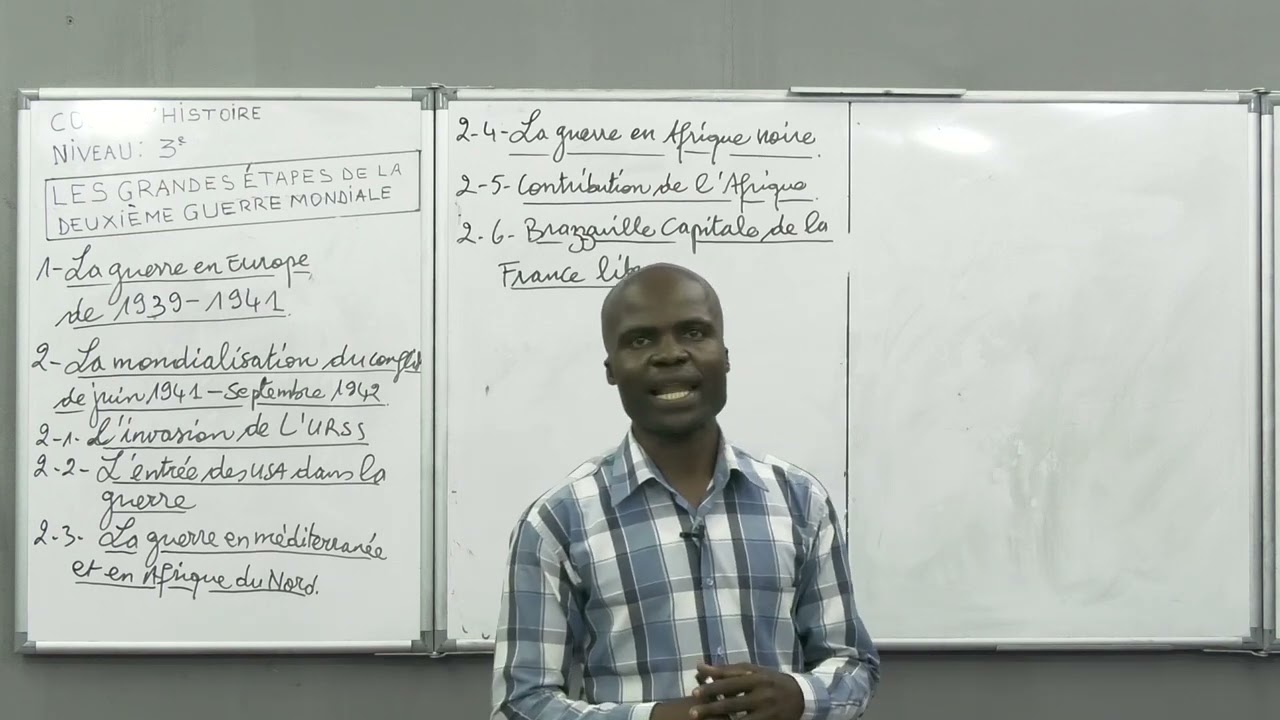 'HISTOIRE
NIVEAU: 3e
LES GRANDES ÉTAPES DE LA
DEUXIÈME GUERRE MONDIALE
1- La guerre en Europe
de 1939-1941
2- La mondialisation du
de juin 1941 - Septembre 1942
2-1- L'invasion de L'URSS
2-2- L'entrée des USA dans la
guerre
2-3- La guerre en méditerranée
et en Afrique du Nord.
2-4- La guerre en Afrique noire.
2-5- Contribution de l'Afrique.
2-6- Brazzaville Capitale de la
France